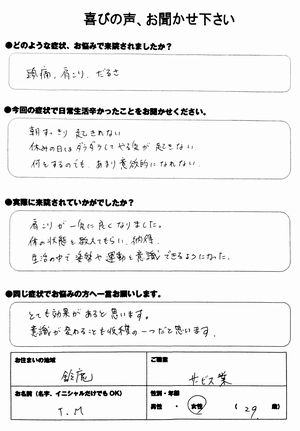 喜びの声、お聞かせ下さい
●どのような症状、お悩みで来院されましたか？
頭痛、肩こり、だるさ
●今回の症状で日常生活辛かったことをお聞かせください。
朝すっきり起きれない
休みの日はダラダラしてやる気が起きない
何をするのでも、あまり意欲的になれない
●実際に来院されていかがでしたか？
肩こりが一気に良くなりました。
体の状態を教えてもらい、納得。
生活の中で姿勢や運動を意識できるようになった。
●同じ症状でお悩みの方へ一言お願いします。
とても効果があると思います。
意識が変わることも収穫の一つだと思います。
お住まいの地域
ご職業
鈴鹿
サービス業
お名前（名字、イニシャルだけでもOK）
性別・年齢
T.M
男性 ・ 女性 （ 29 歳）